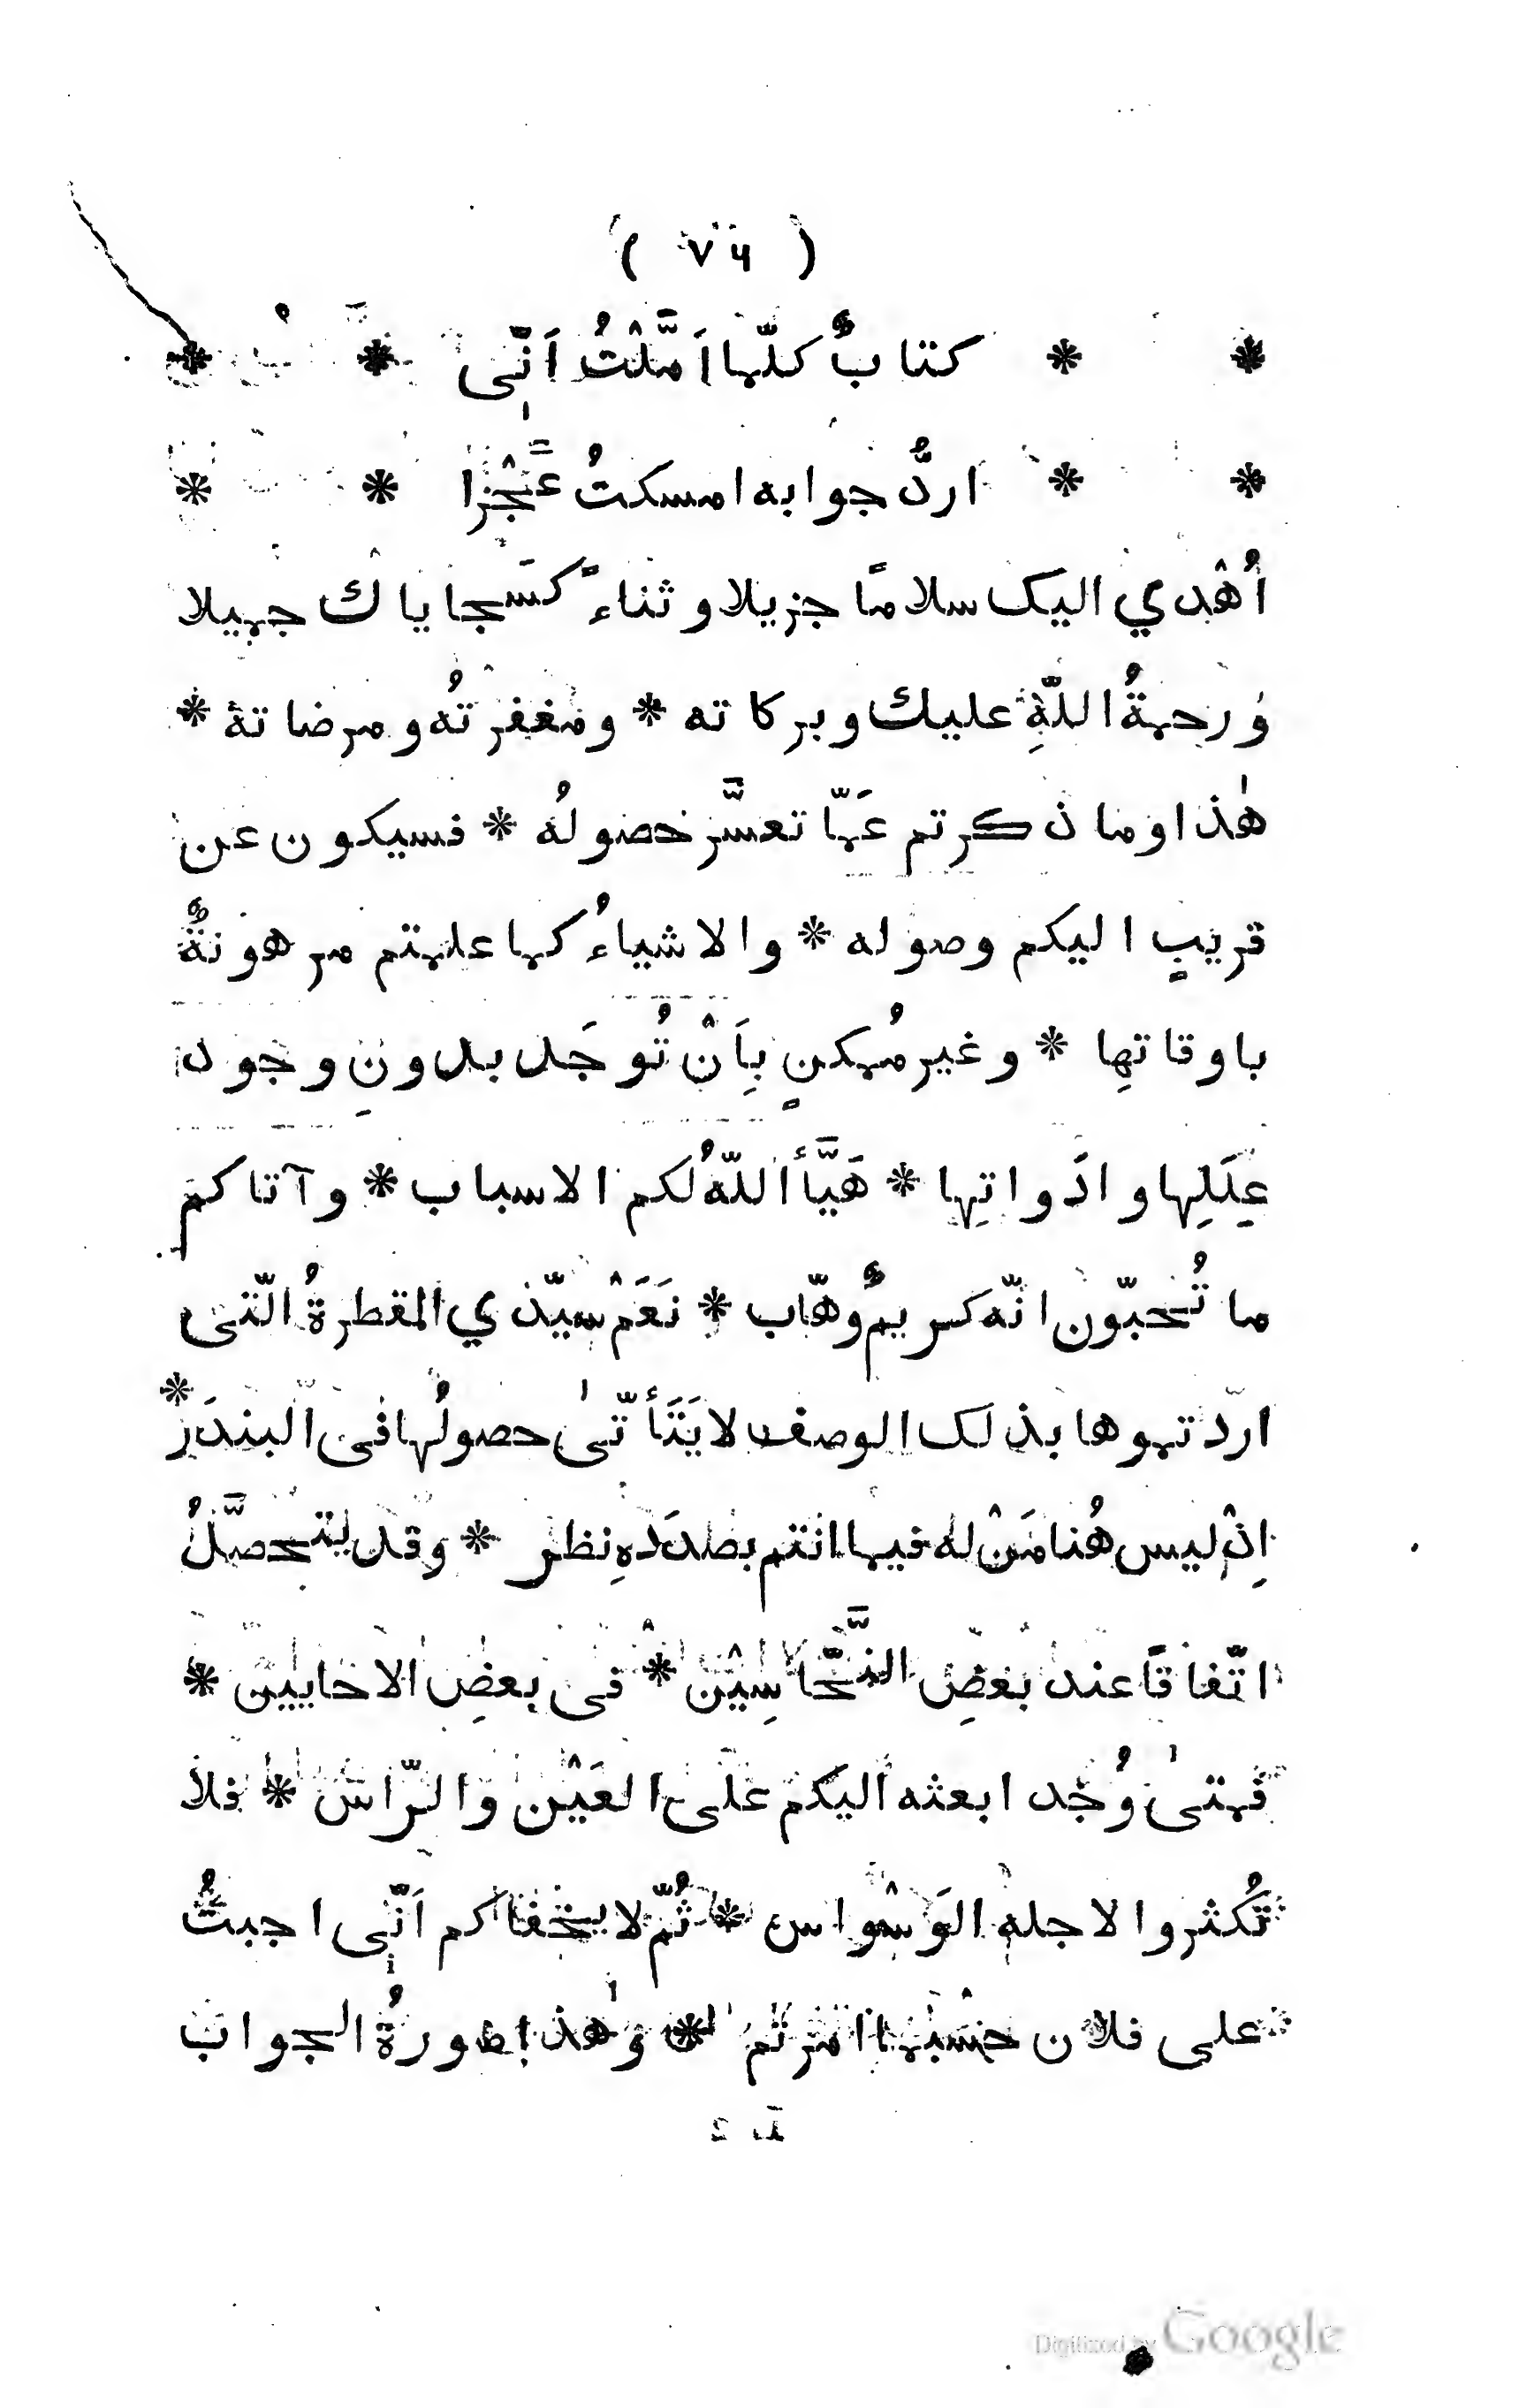 ( ٧٤ )
* * كتابٌ كلّما اَمَّلْتُ اَنّى * *
* * اردُّ جوابه امسكتُ عَجْزا * *
اُهْدي اليك سلامًا جزيلا و ثناءً كسَجاياك جميلا
و رحمةُ اللّهِ عليك وبركاته * ومغفرتُه ومرضاته *
هٰذا وما ذكرتم عَمّا تعسَّر حصولُه * فسيكون عن
قريبٍ اليكم وصوله * والاشياءُ كما علمتم مرهونةٌ
باوقاتهِا * وغير مُمكنٍ بِاَنْ تُوجَد بدونِ وجود
عِلَلِها وادَواتِها * هَيَّأ اللّهُ لكم الاسباب * وآتاكم
ما تُحبّون انّه كريمٌ وهّاب * نَعَمْ سيّدي المقطرةُ الّتى
اردتموها بذلك الوصف لا يَتَأتّىٰ حصولُها فى البندَر *
اِذْ ليس هُنا مَنْ له فيما انتم بصدَدهِ نظر * وقد يتحصَّلُ
اتّفاقًا عند بعضِ النَّحّاسِيْن * فى بعضِ الاحايين *
فمتىٰ وُجد ابعثه اليكم على العَيْن والرّاس * فلا
تُكثروا لاجله الوَسْواس * ثُمّ لا يخفاكم اَنّى اجبتُ
على فلان حسْبما امرتم * وهٰذا صورةُ الجواب
L 2
Digitized by Google